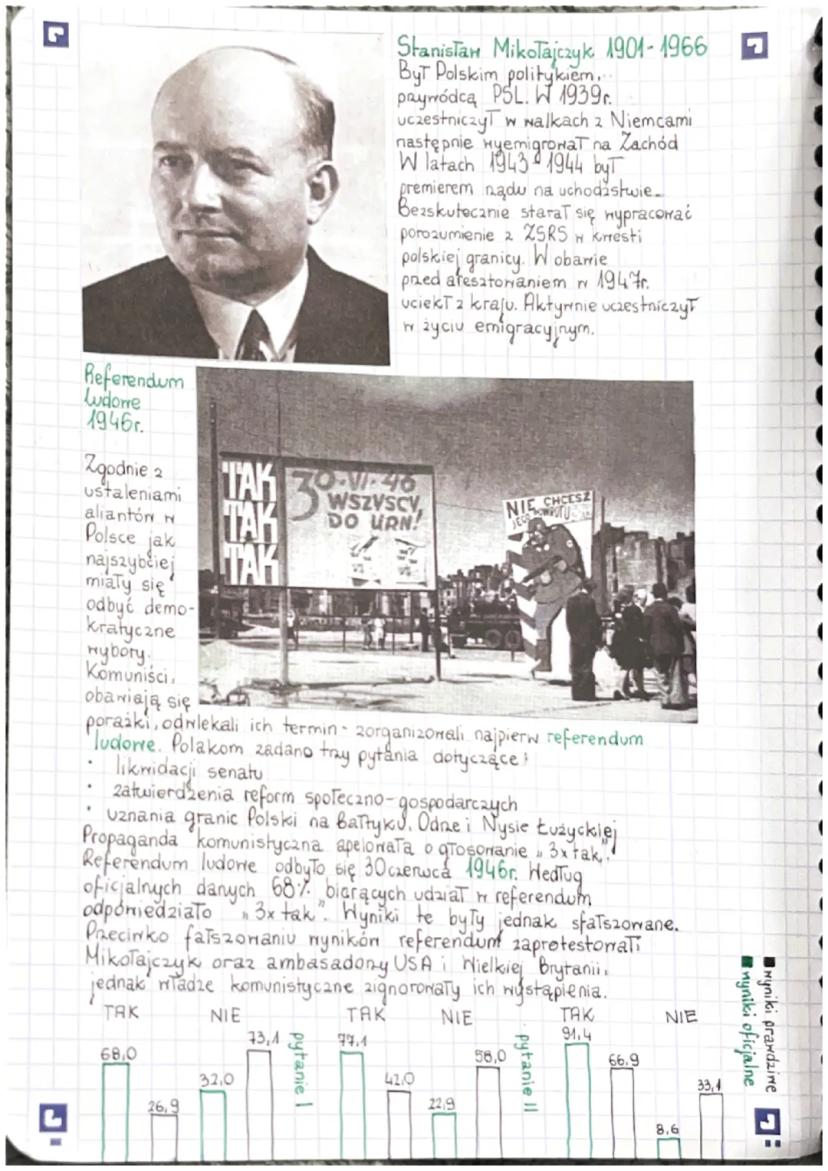 Stanisław Mikołajczyk 1901-1966
Był Polskim politykiem,
przywódcą PSL. W 1939r.
uczestniczył w walkach z Niemcami
następnie wyemigrował na Zachód
W latach 1943-1944 był
premierem rządu na uchodźstwie.
Bezskutecznie starał się wypracować
porozumienie z ZSRS w kwesti
polskiej granicy. W obawie
przed aresztowaniem w 1947r.
uciekł z kraju. Aktywnie uczestniczył
w życiu emigracyjnym.
Referendum
ludowe
1946r.
Zgodnie z
ustaleniami
aliantów w
Polsce jak
najszybciej
miały się
odbyć demo-
kratyczne
wybory.
Komuniści,
obawiają się
porażki, odwlekali ich termin - zorganizowali najpierw referendum
ludowe. Polakom zadano trzy pytania dotyczące:
• likwidacji senatu
• zatwierdzenia reform społeczno-gospodarczych
• uznania granic Polski na Bałtyku, Odrze i Nysie Łużyckiej
Propaganda komunistyczna apelowała o głosowanie „3x tak".
Referendum ludowe odbyło się 30 czerwca 1946r. Według
oficjalnych danych 68% biorących udział w referendum
odpowiedziało „3x tak". Wyniki te były jednak sfałszowane.
Przeciwko fałszowaniu wyników referendum zaprotestowali
Mikołajczyk oraz ambasadorzy USA i Wielkiej Brytanii,
jednak władze komunistyczne zignorowały ich wystąpienia.
TAK
TAK
TAK
30·VI·46
WSZYSCY
DO URN!
NIE CHCESZ
JEGO POWROTU
TAK NIE TAK NIE TAK NIE
68,0
26,9
32,0
73,1
pytanie I
77,1
42,0
22,9
58,0
pytanie II
91,4
66,9
8,6
33,1
wyniki prawdziwe
wyniki oficjalne